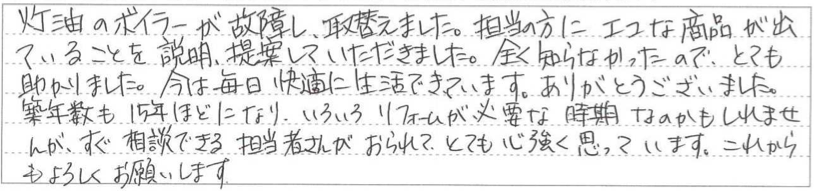 灯油のボイラーが故障し、取替えました。担当の方にエコな商品が出
ていることを説明、提案していただきました。全く知らなかったので、とても
助かりました。今は毎日快適に生活できています。ありがとうございました。
築年数も15年ほどになり、いろいろリフォームが必要な時期なのかもしれませ
んが、すぐ相談できる担当者さんがおられて、とても心強く思っています。これから
もよろしくお願いします